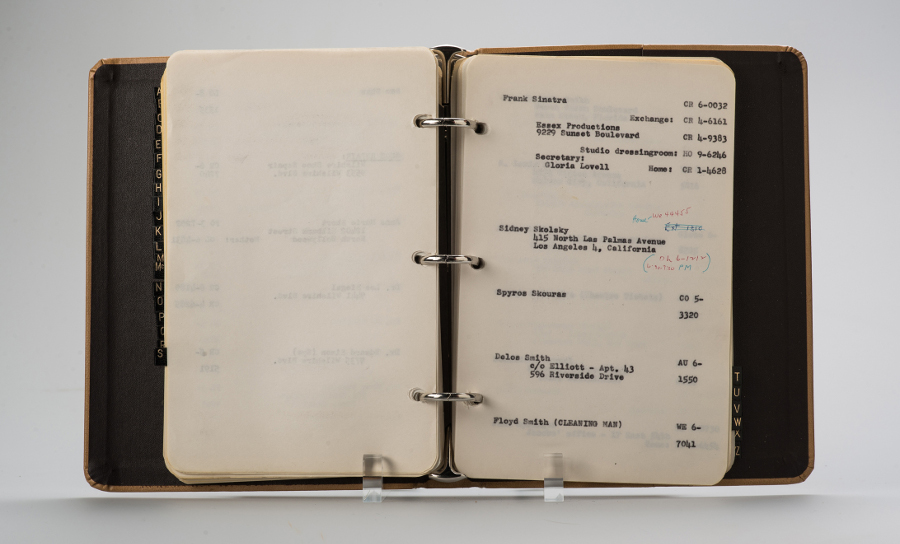 A
B
C
D
E
F
G
H
I
J
K
L
M
N
O
P
Q
R
S
Frank Sinatra CR 6-0032
Exchange: CR 4-6161
Essex Productions
9229 Sunset Boulevard CR 4-9383
Studio dressingroom: HO 9-6246
Secretary:
Gloria Lovell Home: CR 1-4628
Sidney Skolsky
415 North Las Palmas Avenue
Los Angeles 4, California
Spyros Skouras CO 5-
3320
Delos Smith AU 6-
c/o Elliott - Apt. 43
596 Riverside Drive 1550
Floyd Smith (CLEANING MAN) WE 6-
7041
T
U
V
W
Z